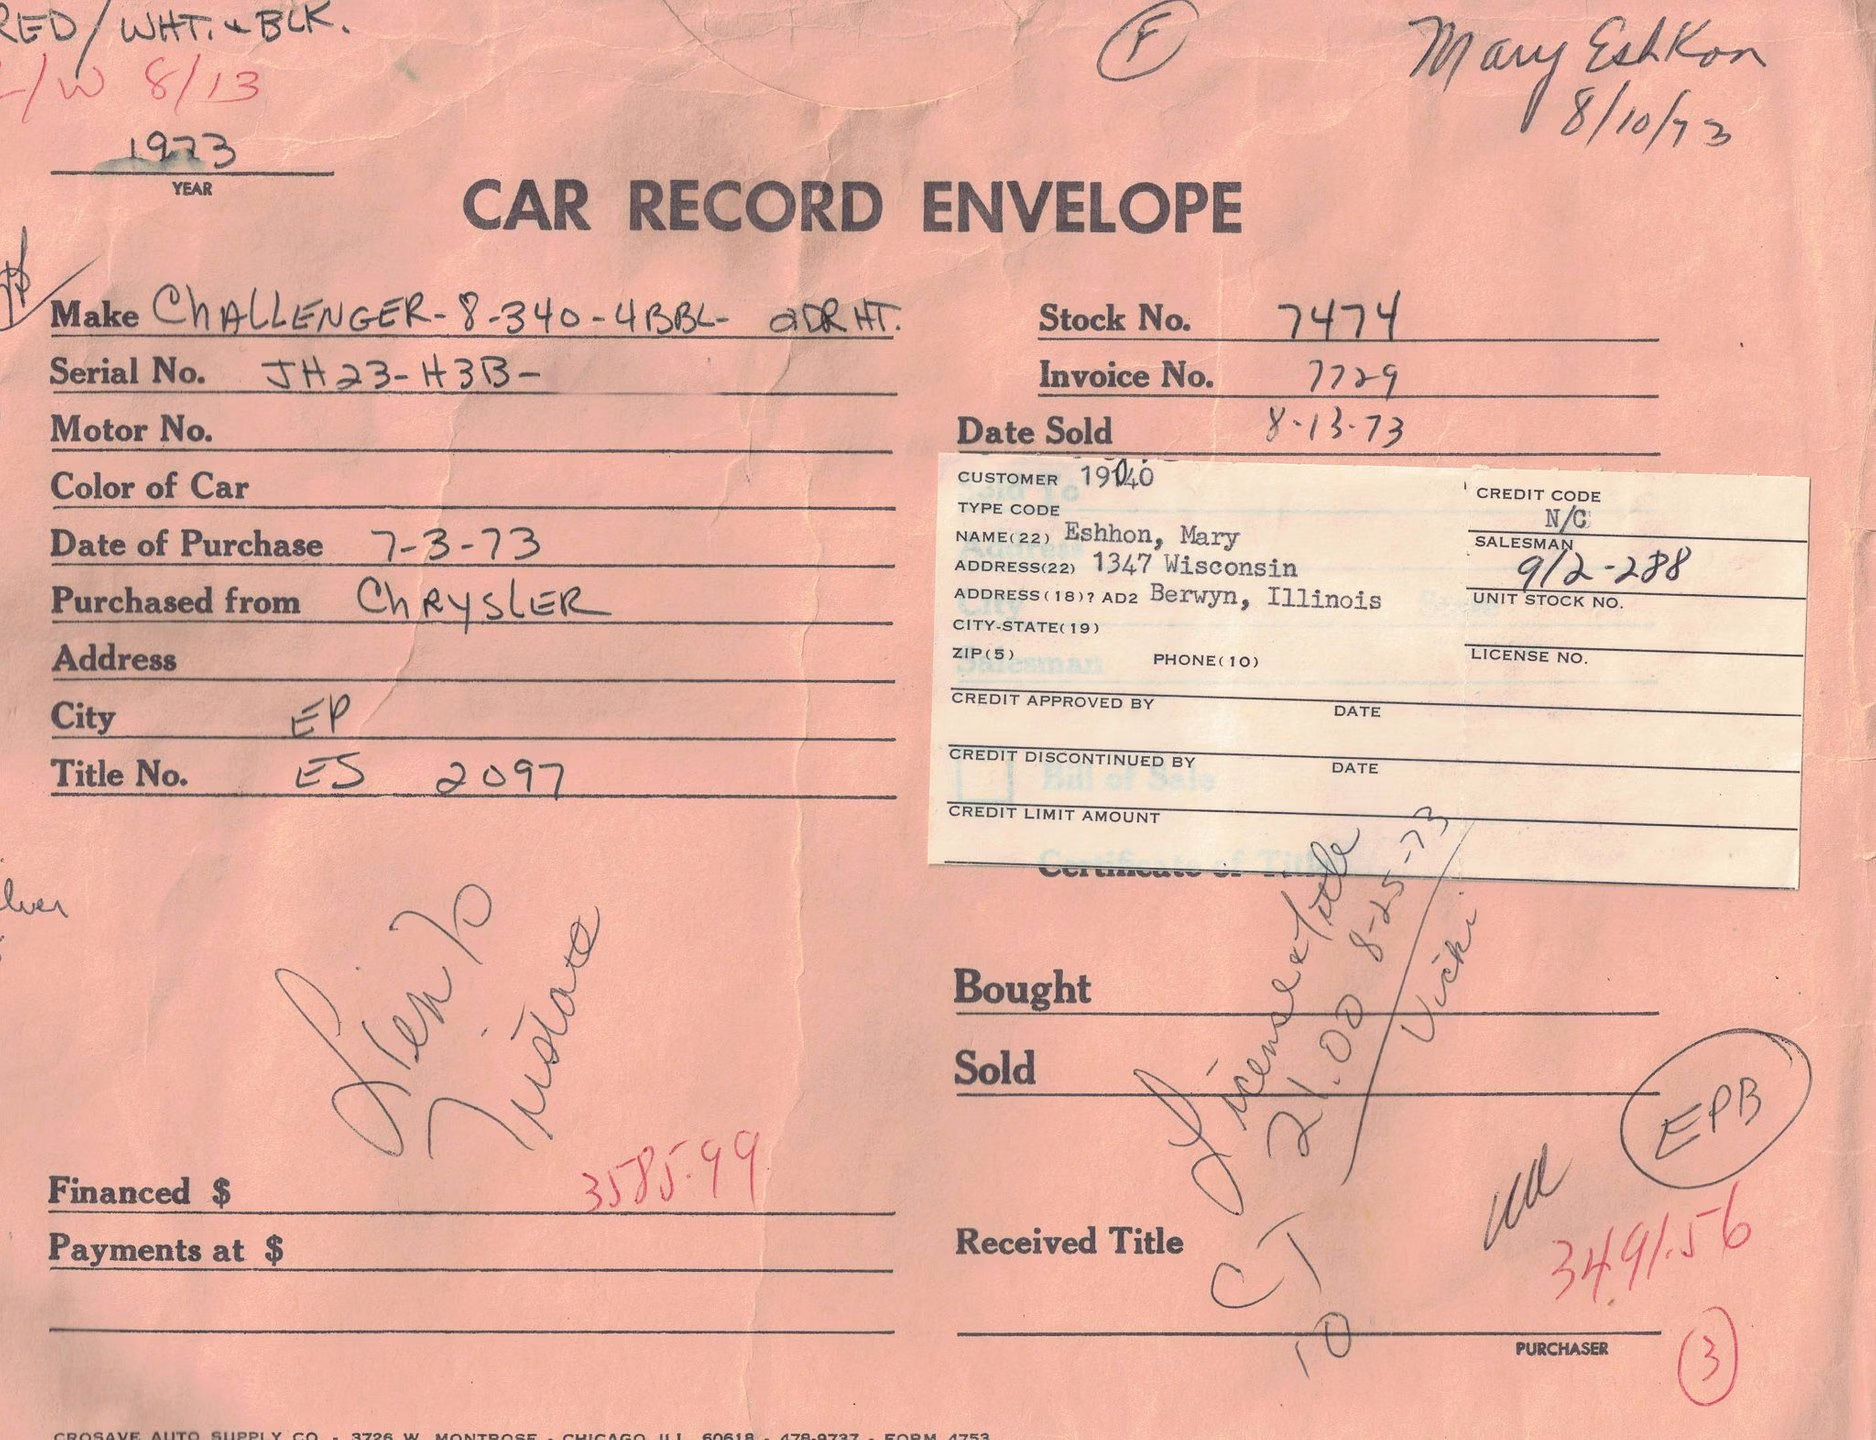 RED/WHT. & BLK.
F
Mary Eshkon
/W 8/13
8/10/73
1973
YEAR
CAR RECORD ENVELOPE
Make CHALLENGER-8-340-4BBL- 2DR HT.
Stock No. 7474
Serial No. JH23-H3B-
Invoice No. 7729
Motor No.
Date Sold 8-13-73
Color of Car
Date of Purchase 7-3-73
Purchased from CHRYSLER
Address
City EP
Title No. ES 2097
CUSTOMER 19140
CREDIT CODE
N/C
TYPE CODE
NAME(22) Eshhon, Mary
SALESMAN
912-288
ADDRESS(22) 1347 Wisconsin
ADDRESS(18)? AD2 Berwyn, Illinois
UNIT STOCK NO.
CITY-STATE(19)
ZIP(5) PHONE(10)
LICENSE NO.
CREDIT APPROVED BY DATE
CREDIT DISCONTINUED BY DATE
Bill of Sale
CREDIT LIMIT AMOUNT
Certificate of Title
Lien to
Tristate
License & Title
21.00 8-25-73
Vicki
Bought
Sold
EPB
Financed $ 3585.99
Payments at $
Received Title
CT
10
3491.56
PURCHASER
3
CROSAVE AUTO SUPPLY CO. - 3726 W. MONTROSE - CHICAGO, ILL. 60618 - 478-9737 - FORM 4753